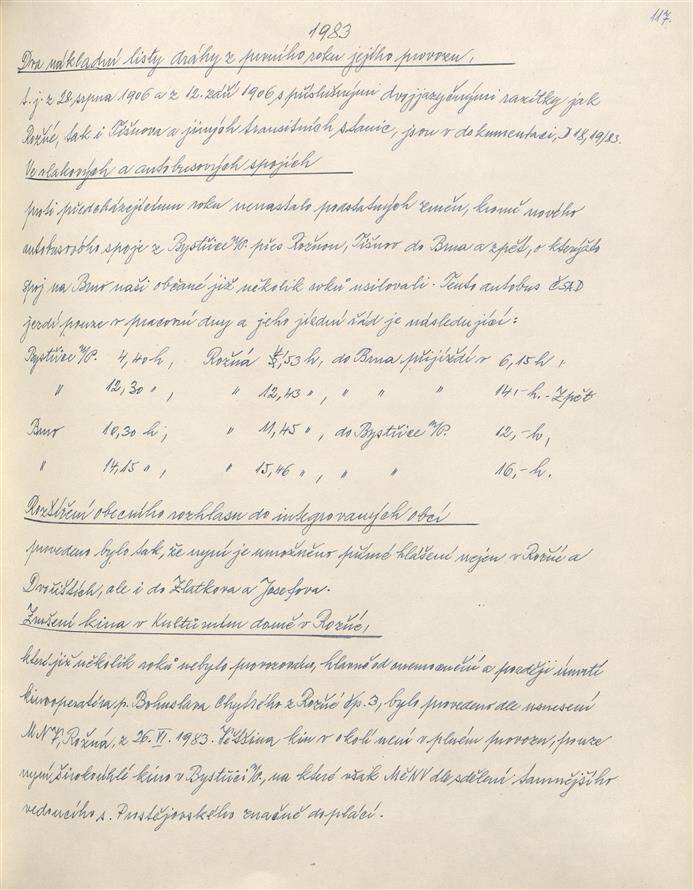 117.
1983
Dva nákladní listy dráhy z prvního roku jejího provozu,
t. j. z 28. srpna 1906 a z 12. září 1906, s příslušnými dvojjazyčnými razítky jak
Rožné, tak i Tišnova a jiných transitních stanic, jsou v dokumentaci, D 18, 19/83.
Ve vlakových a autobusových spojích
proti předcházejícímu roku nenastalo podstatných změn, kromě nového
autobusového spoje z Bystřice n/P. přes Rožnou, Tišnov do Brna a zpět, o kterýžto
spoj na Brno naši občané již několik roků usilovali. Tento autobus ČSAD
jezdí pouze v pracovní dny a jeho jízdní řád je následující:
Bystřice n/P. 4,40 h, Rožná 4,53 h, do Brna přijíždí v 6,15 h,
" 12,30 ", " 12,43 ", " " " 14,- h. - Zpět
Brno 10,30 h, " 11,45 ", do Bystřice n/P. 12,- h,
" 14,15 ", " 15,46 ", " " 16,- h.
Rozšíření obecního rozhlasu do integrovaných obcí
provedeno bylo tak, že nyní je umožněno přímé hlášení nejen v Rožné a
Dvořištích, ale i do Zlatkova a Josefova.
Zrušení kina v Kulturním domě v Rožné,
které již několik roků nebylo provozováno, hlavně od onemocnění a později úmrtí
kinooperatéra p. Bohuslava Chytrého z Rožné čp. 3, bylo provedeno dle usnesení
MNV, Rožná, z 26. VI. 1983. Většina kin v okolí není v plném provozu, pouze
nyní širokoúhlé kino v Bystřici n/P., na které však MěNV dle sdělení tamnějšího
vedoucího s. Prostějovského značně doplácí.